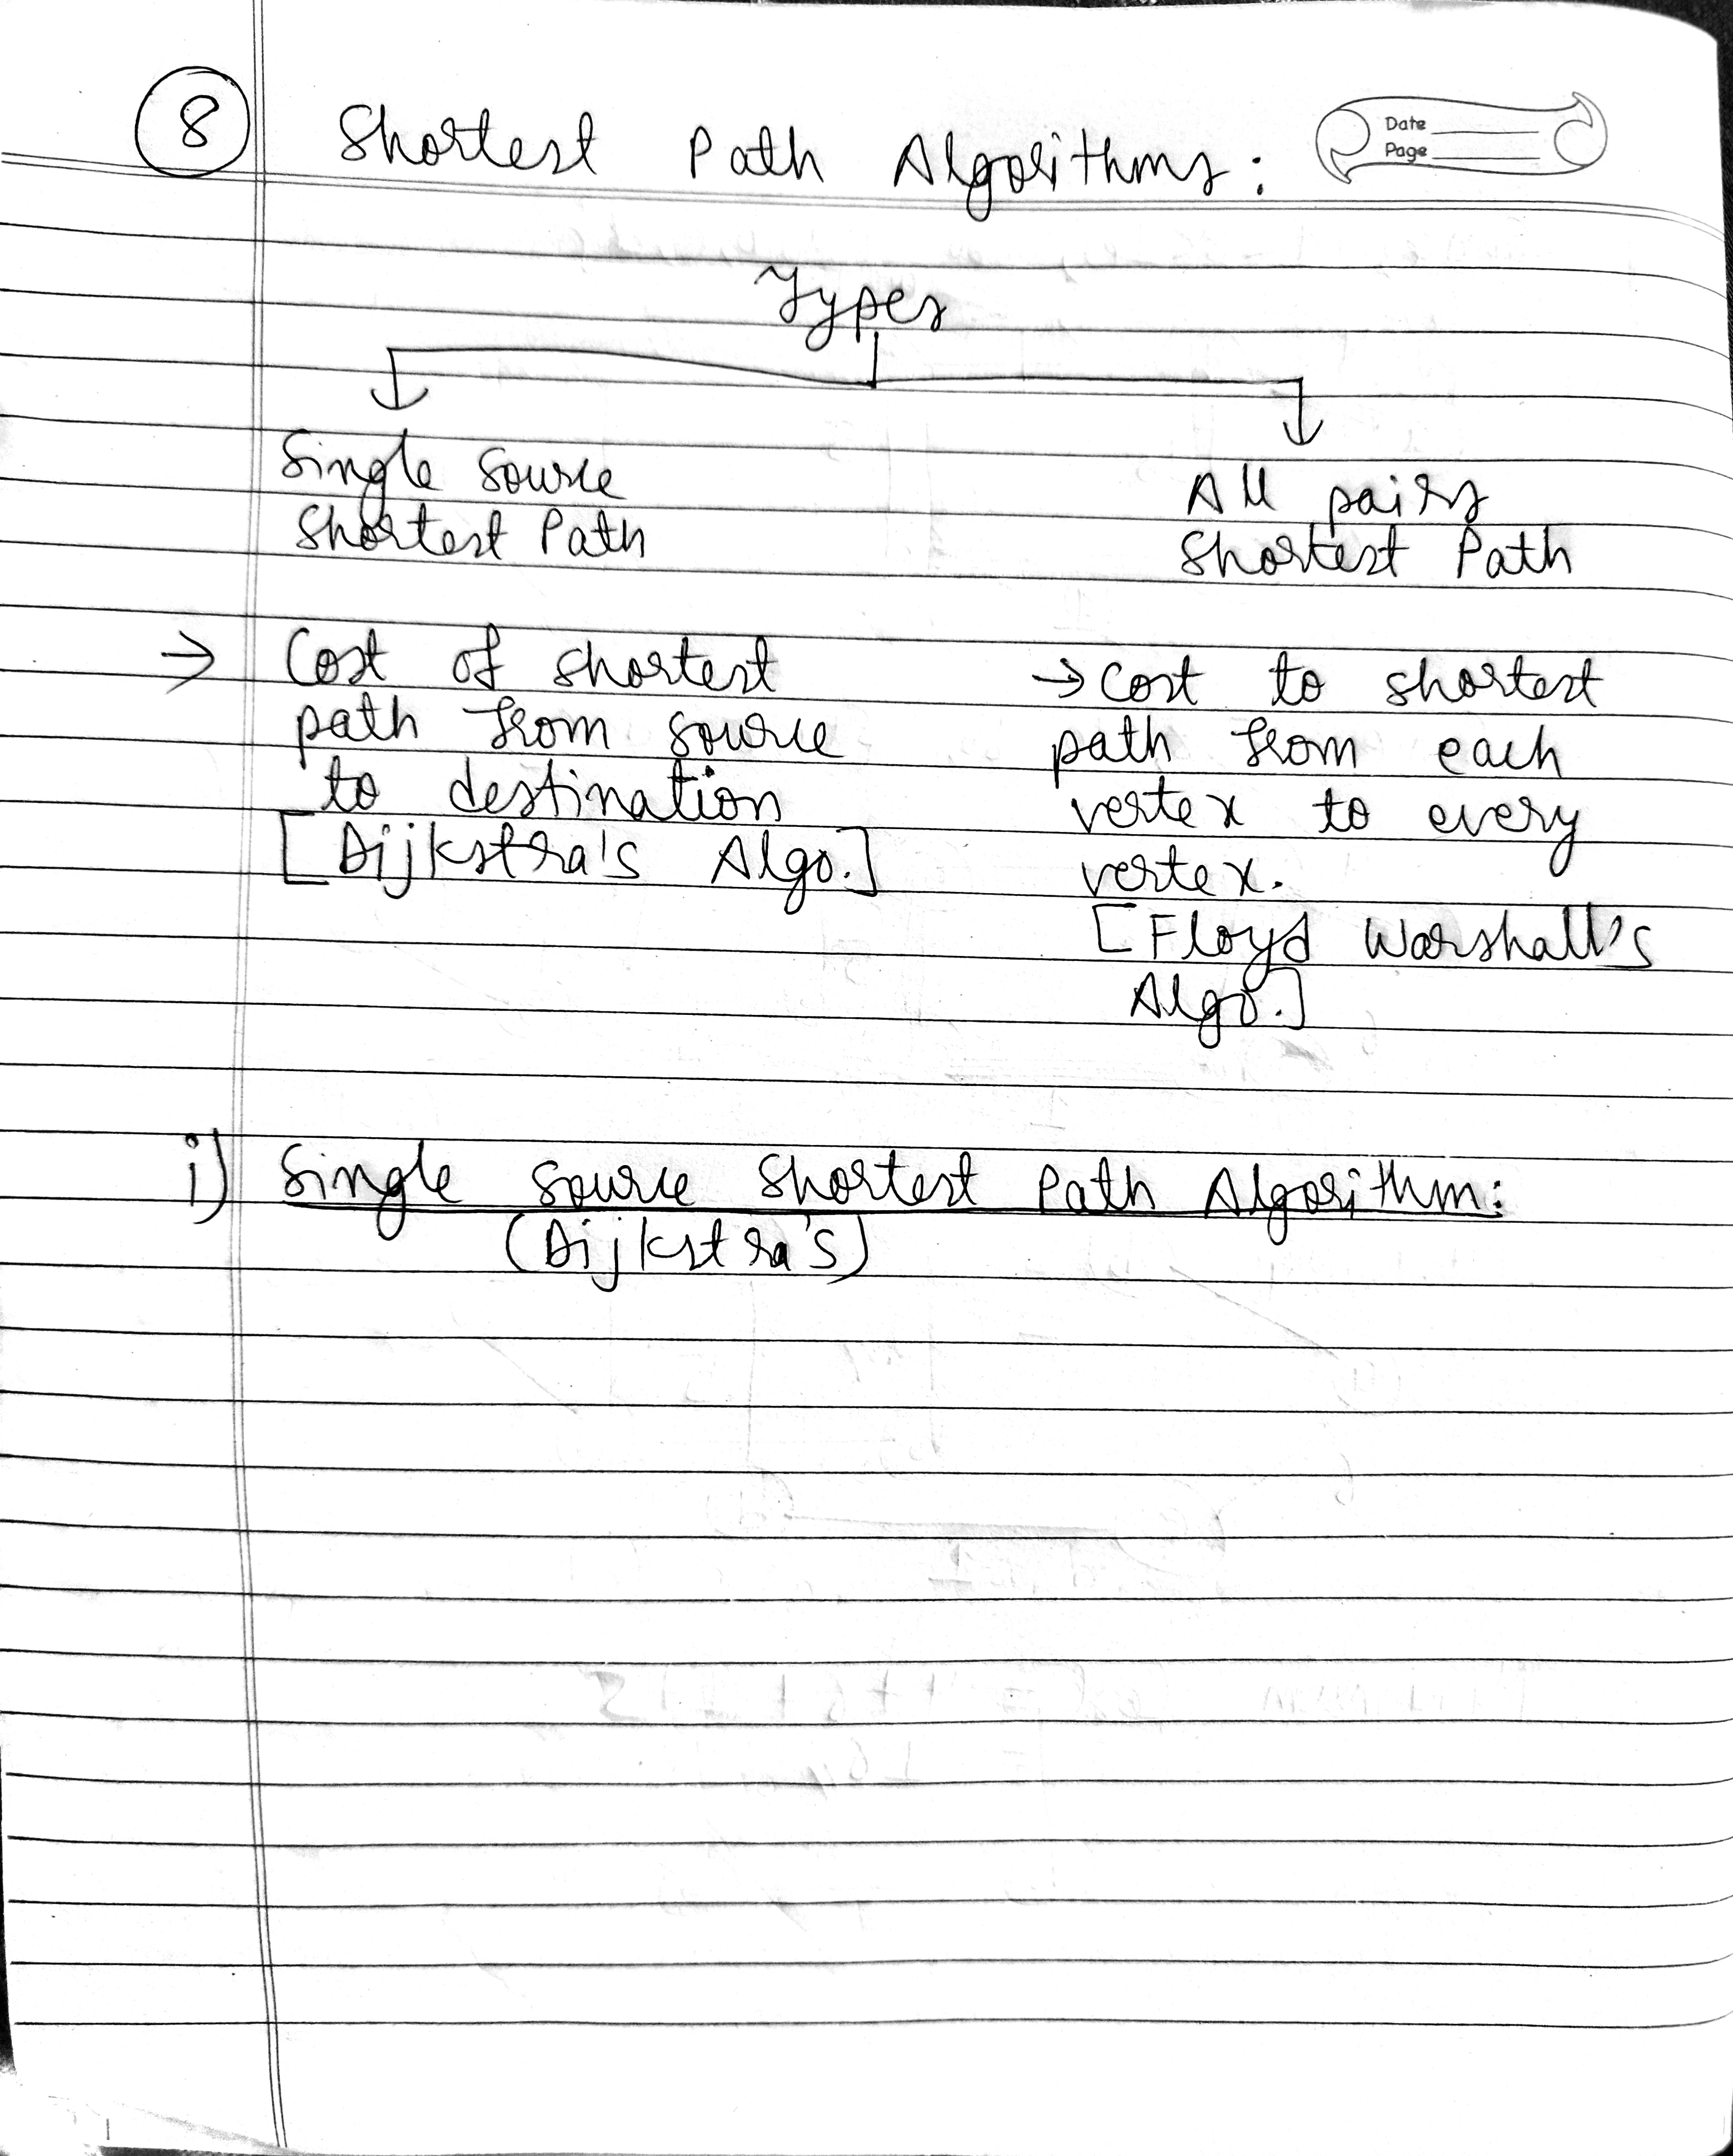 8 Shortest Path Algorithms:
Date
Page
Types
Single Source
Shortest Path
All pairs
Shortest Path
→ Cost of shortest
path from source
to destination
[Dijkstra's Algo.]
→ cost to shortest
path from each
vertex to every
vertex.
[Floyd Warshall's
Algo.]
i) Single Source Shortest Path Algorithm:
(Dijkstra's)